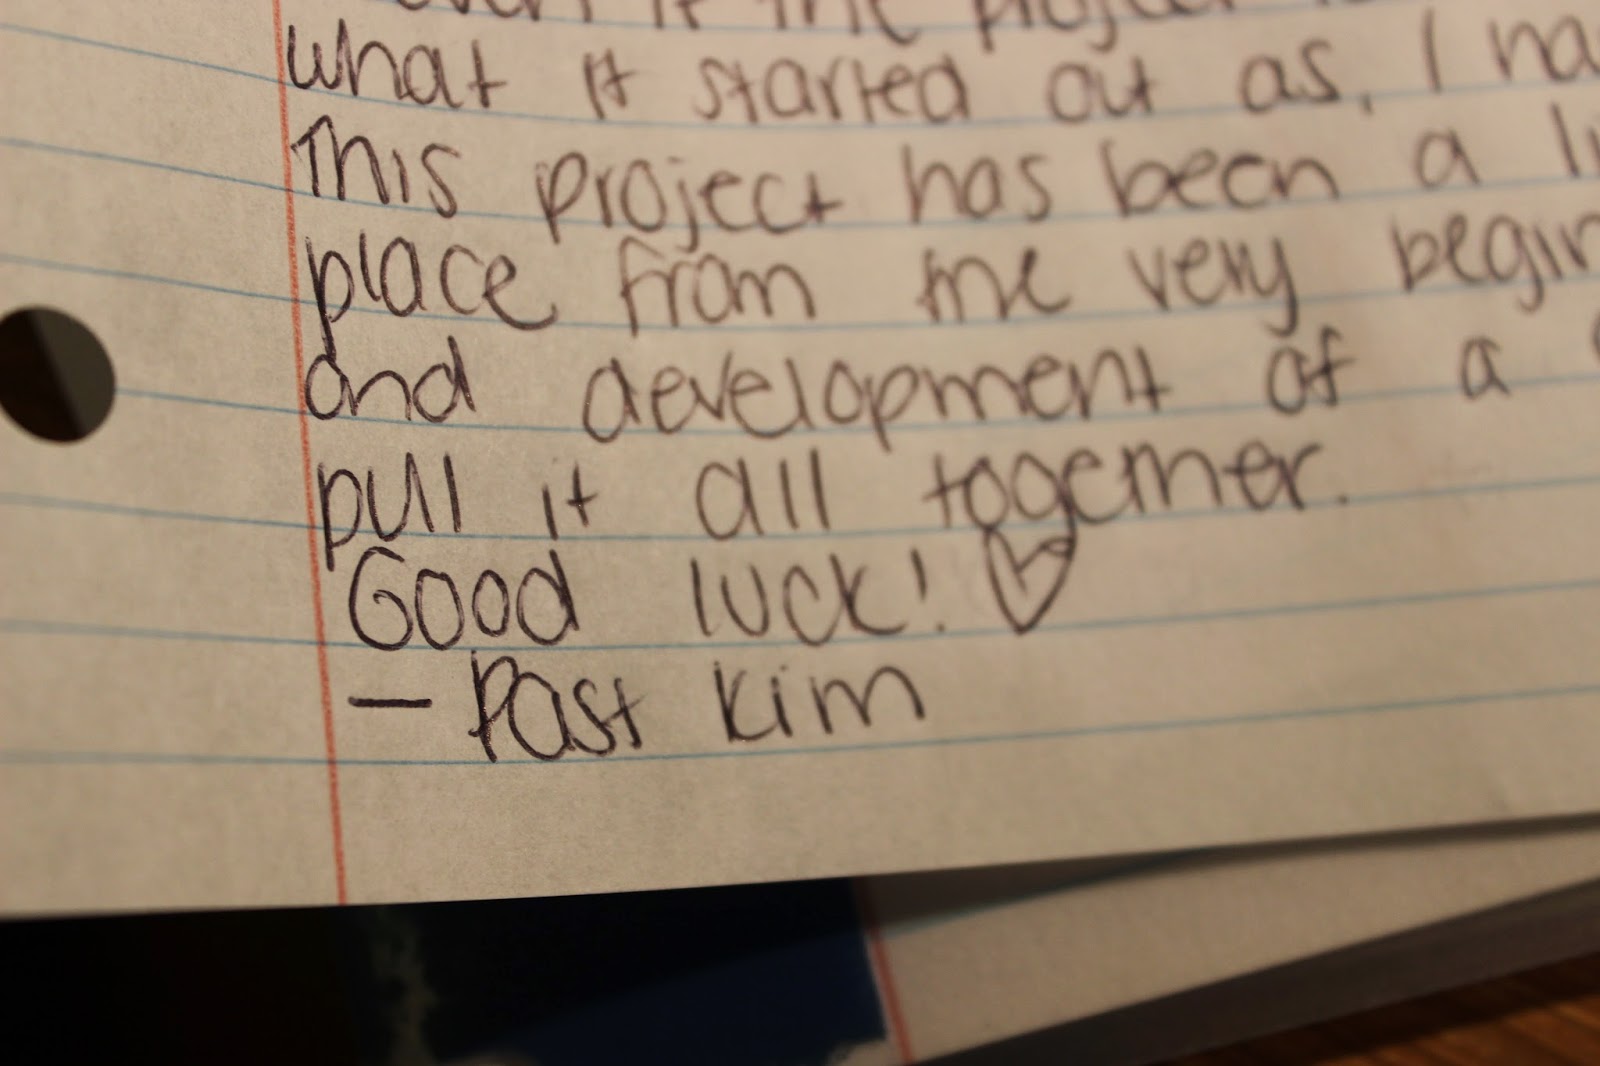 if the project
what it started out as, I
This project has been a
place from the very
and development of a
pull it all together.
Good luck! ♡
— Past Kim